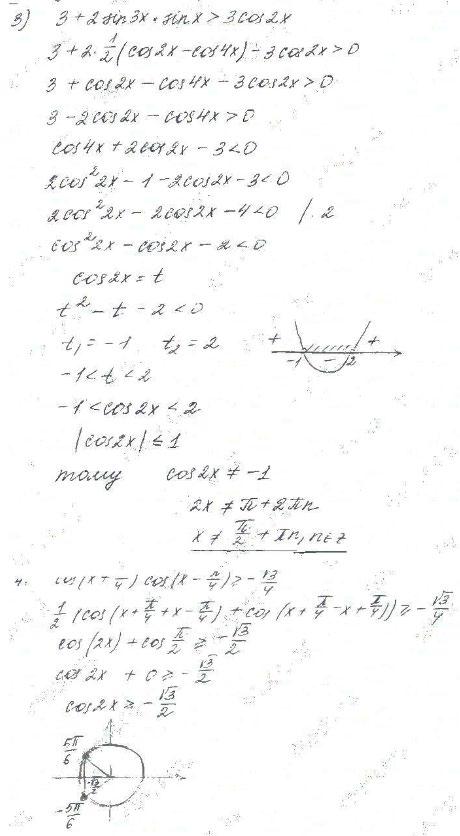 3) 3 + 2 sin3x · sinx > 3cos2x
3 + 2 · 1/2 (cos2x - cos4x) - 3cos2x > 0
3 + cos2x - cos4x - 3cos2x > 0
3 - 2cos2x - cos4x > 0
cos4x + 2cos2x - 3 < 0
2cos²2x - 1 - 2cos2x - 3 < 0
2cos²2x - 2cos2x - 4 < 0 /: 2
cos²2x - cos2x - 2 < 0
cos2x = t
t² - t - 2 < 0
t₁ = -1 t₂ = 2
+ -1 - 2 +
-1 < t < 2
-1 < cos2x < 2
|cos2x| ≤ 1
тому cos2x ≠ -1
2x ≠ π + 2πn
x ≠ π/2 + πn, n ∈ z
4. cos(x + π/4) cos(x - π/4) ≥ -√3/4
1/2 (cos(x + π/4 + x - π/4) + cos(x + π/4 - x + π/4)) ≥ -√3/4
cos(2x) + cos π/2 ≥ -√3/2
cos2x + 0 ≥ -√3/2
cos2x ≥ -√3/2
5π/6
-√3/2
-5π/6